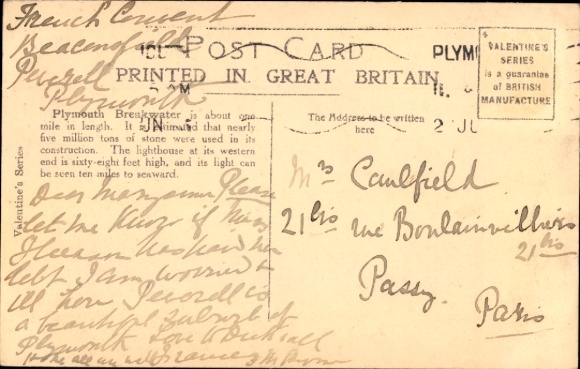 French Convent
Beaconsfield
Peverell
Plymouth
POST CARD
PRINTED IN GREAT BRITAIN
PLYM
VALENTINE'S
SERIES
is a guarantee
of BRITISH
MANUFACTURE
2 JU
Plymouth Breakwater is about one
mile in length. It is estimated that nearly
five million tons of stone were used in its
construction. The lighthouse at its western
end is sixty-eight feet high, and its light can
be seen ten miles to seaward.
The Address to be written
here
Valentine's Series
Dear Please
let me know if
has paid her
debt I am worried &
ill here Peverell is
a beautiful suburb of
Plymouth Love to
Mrs Caulfield
21 bis rue Boulainvilliers
21 bis
Passy
Paris